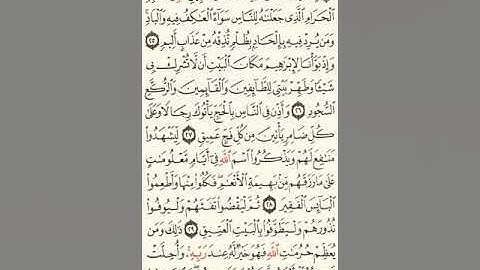 الْحَرَامِ الَّذِي جَعَلْنَاهُ لِلنَّاسِ سَوَاءً الْعَاكِفُ فِيهِ وَالْبَادِ
وَمَنْ يُرِدْ فِيهِ بِإِلْحَادٍ بِظُلْمٍ نُذِقْهُ مِنْ عَذَابٍ أَلِيمٍ ٢٥
وَإِذْ بَوَّأْنَا لِإِبْرَاهِيمَ مَكَانَ الْبَيْتِ أَنْ لَا تُشْرِكْ بِي
شَيْئًا وَطَهِّرْ بَيْتِيَ لِلطَّائِفِينَ وَالْقَائِمِينَ وَالرُّكَّعِ
السُّجُودِ ٢٦ وَأَذِّنْ فِي النَّاسِ بِالْحَجِّ يَأْتُوكَ رِجَالًا وَعَلَىٰ
كُلِّ ضَامِرٍ يَأْتِينَ مِنْ كُلِّ فَجٍّ عَمِيقٍ ٢٧ لِيَشْهَدُوا
مَنَافِعَ لَهُمْ وَيَذْكُرُوا اسْمَ اللَّهِ فِي أَيَّامٍ مَعْلُومَاتٍ
عَلَىٰ مَا رَزَقَهُمْ مِنْ بَهِيمَةِ الْأَنْعَامِ فَكُلُوا مِنْهَا وَأَطْعِمُوا
الْبَائِسَ الْفَقِيرَ ٢٨ ثُمَّ لْيَقْضُوا تَفَثَهُمْ وَلْيُوفُوا
نُذُورَهُمْ وَلْيَطَّوَّفُوا بِالْبَيْتِ الْعَتِيقِ ٢٩ ذَٰلِكَ وَمَنْ
يُعَظِّمْ حُرُمَاتِ اللَّهِ فَهُوَ خَيْرٌ لَهُ عِنْدَ رَبِّهِ وَأُحِلَّتْ